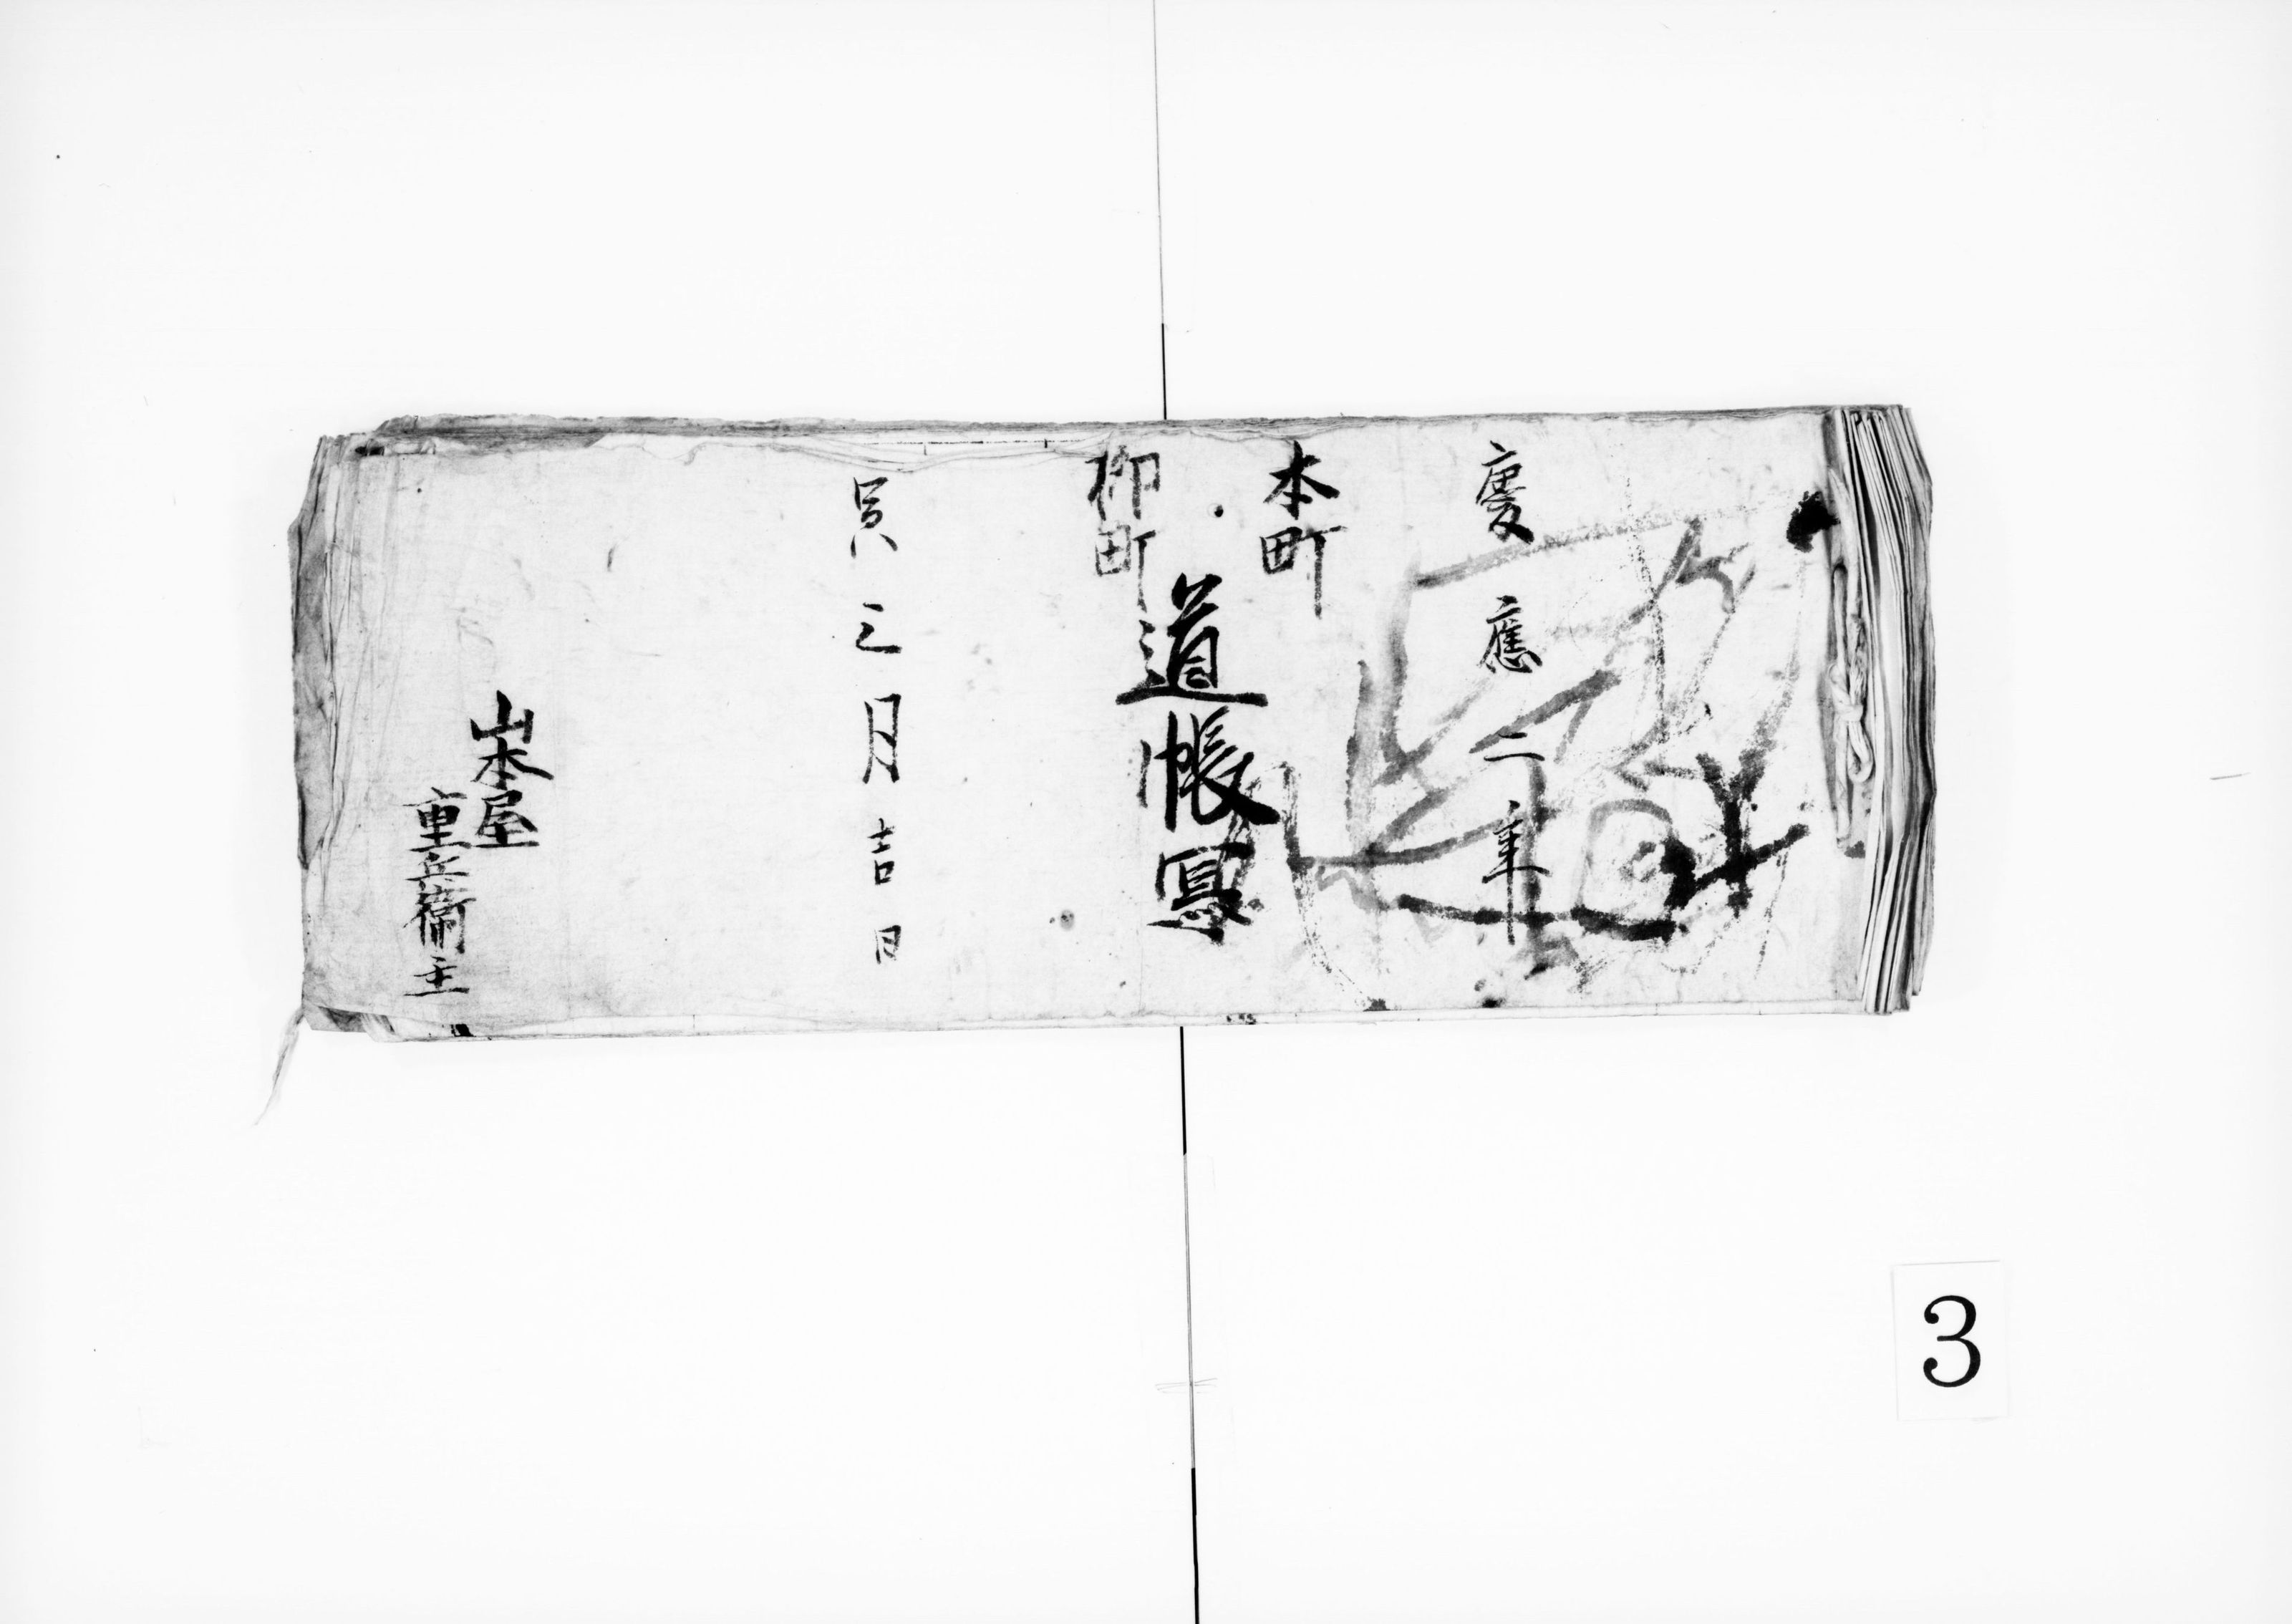 慶應二年
本町
柳町
道帳寫
寅三月吉日
山本屋
重兵衛主
3